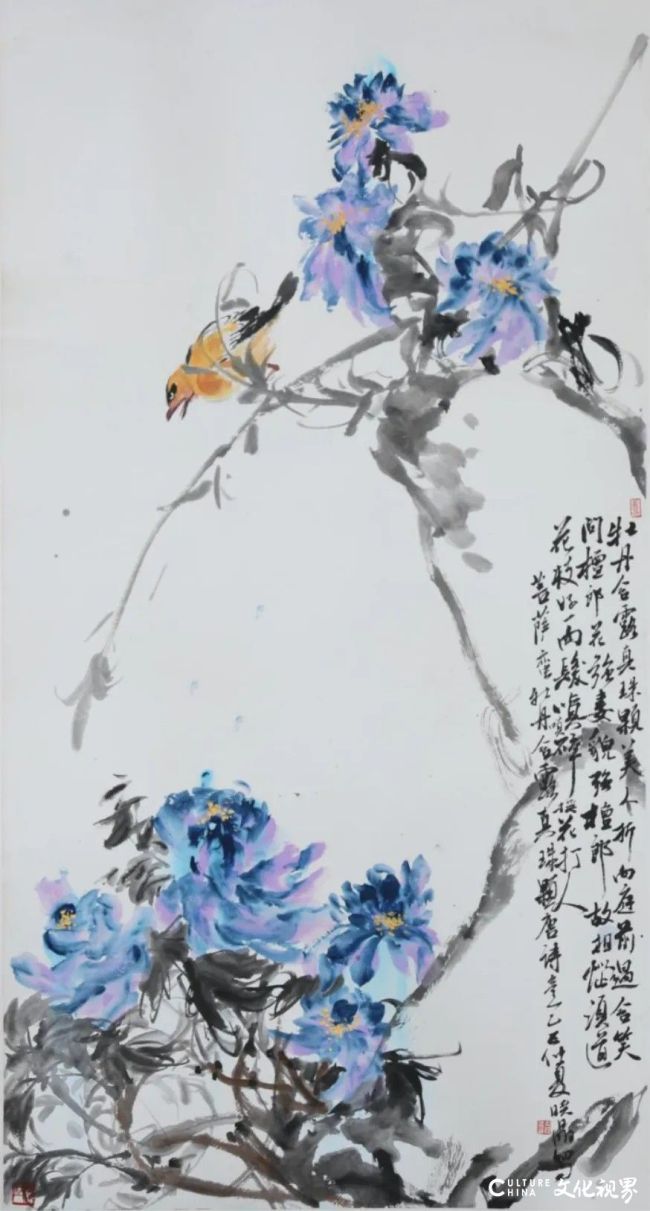 牡丹含露真珠顆美人折向庭前過含笑
问檀郎花强妾貌强檀郎故相惱須道
花枝好一面髮嗔碎挼花打人
菩薩蛮牡丹含露真珠顆唐詩意乙巳仲夏
CULTURE
CHINA 文化视界